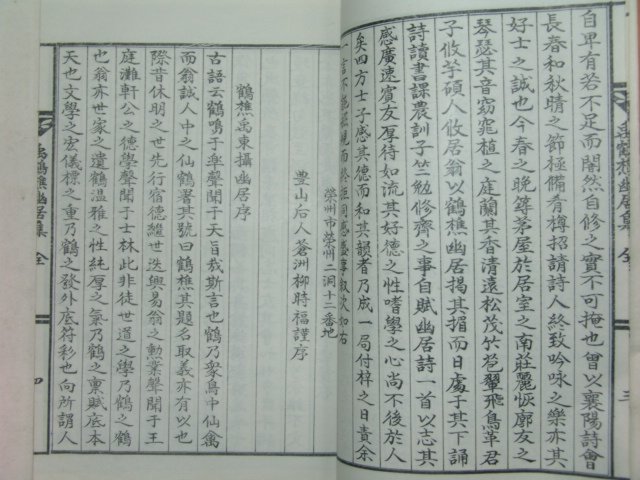 自卑有若不足而闇然自修之實不可掩也曾以襄陽詩會
長春和秋晴之節極備肴樽招請詩人終致吟咏之樂亦其
好士之誠也今春之晚築茅屋於居室之南莊麗恢廓友之
琴瑟其音窈窕植之庭蘭其香清遠松茂竹苞翬飛鳥革君
子攸芋碩人攸居翁以鶴樵幽居揭其楣而日處于其下誦
詩讀書課農訓子竺勉修齊之事自賦幽居詩一首以志其
感廣速賓友厚待如流其好德之性嗜學之心尚不後於人
矣四方士子感其德而和其韻者乃成一局付梓之日責余
一言不
榮州市榮州二洞十二番地
豊山后人蒼洲柳時福謹序
鶴樵禹東攝幽居序
古語云鶴鳴于皐聲聞于天旨哉斯言也鶴乃衆鳥中仙禽
而翁誠人中之仙鶴署其號曰鶴樵其題名取義亦有以也
際昔休明之世先行宿德繼世迭興易翁之勳業聲聞于王
庭灘軒公之德學聲聞于士林此非徒世道之學乃鶴之鶴
也翁亦世家之遺鶴溫雅之性純厚之氣乃鶴之稟賦底本
天也文學之宏儀標之重乃鶴之發外底符彩也向所謂人
禹鶴樵幽居集 全
四
禹鶴樵幽居集 全
三